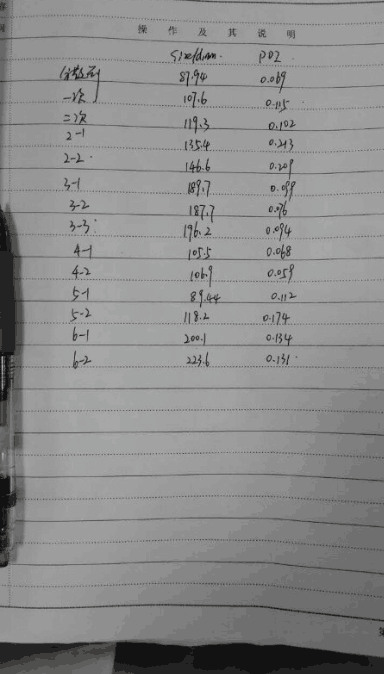 操 作 及 其 说 明
Size/d.nm PDI
分散剂 87.94 0.069
一次 107.6 0.115
二次 119.3 0.102
2-1 135.4 0.213
2-2 146.6 0.209
3-1 189.7 0.099
3-2 187.7 0.076
3-3 196.2 0.094
4-1 105.5 0.068
4-2 106.9 0.059
5-1 89.44 0.112
5-2 118.2 0.174
6-1 200.1 0.134
6-2 223.6 0.131